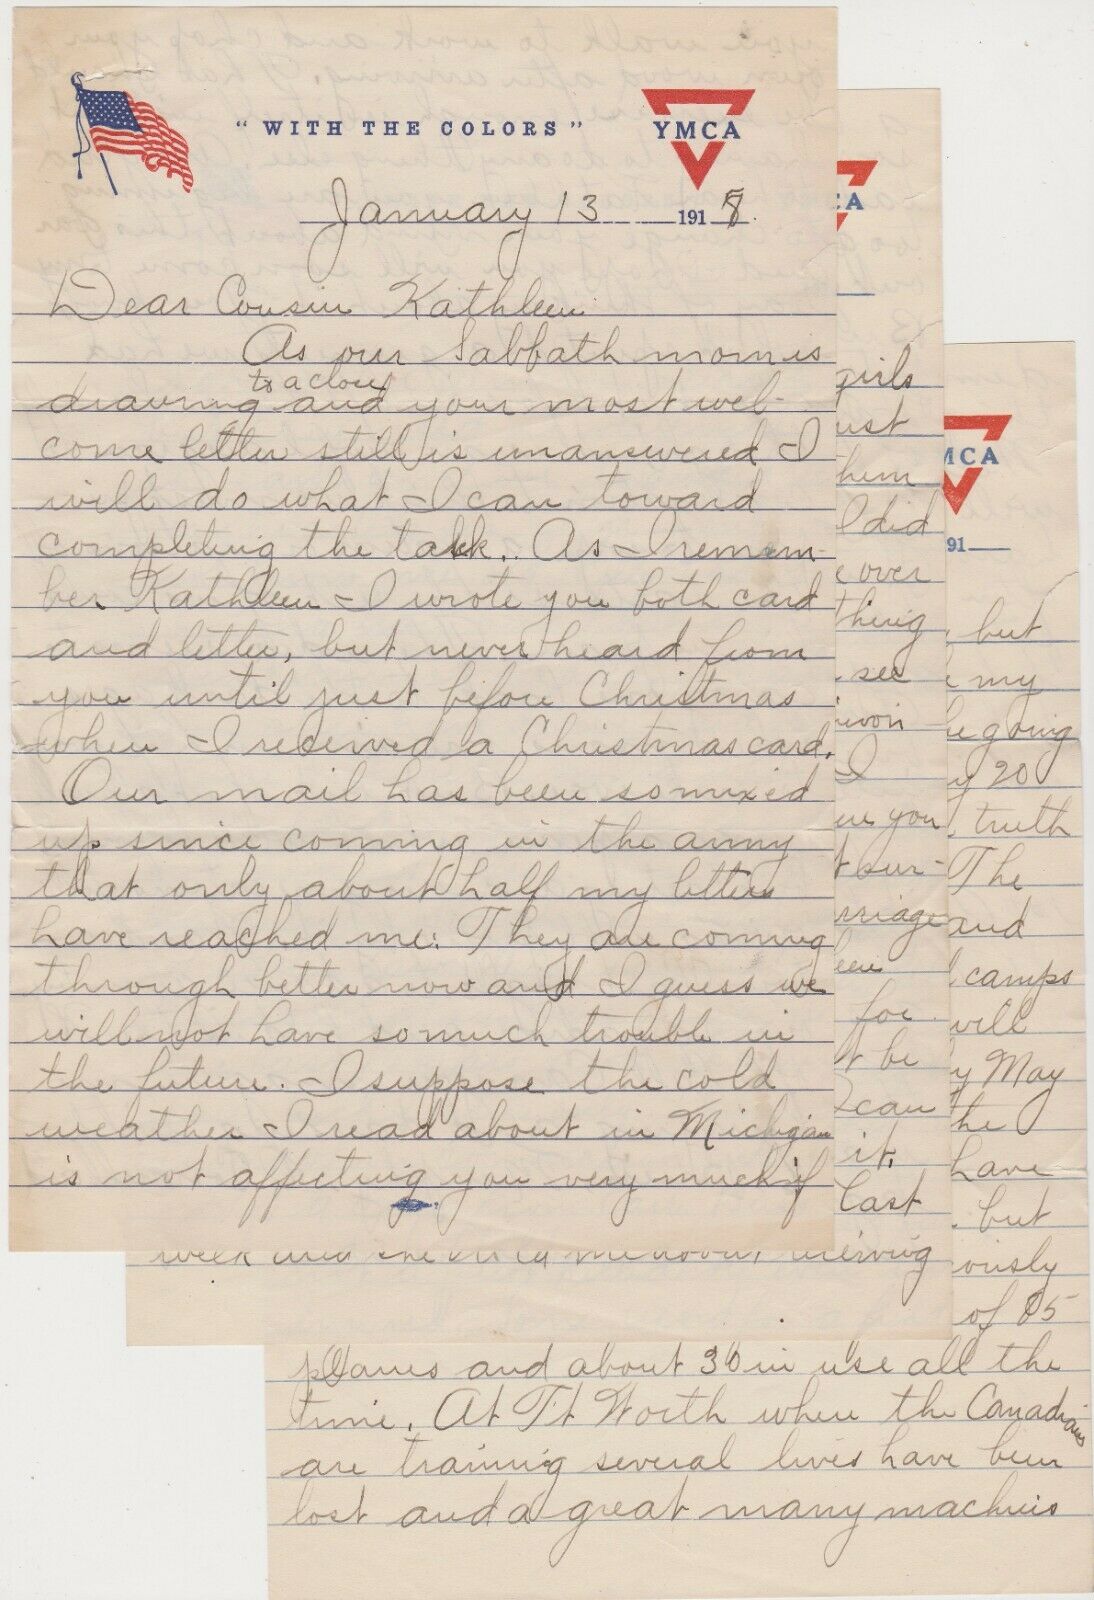 "WITH THE COLORS"
YMCA
January 13 1918.
Dear Cousin Kathleen:
As our Sabbath morn is
to a close
drawing and your most wel-
come letter still is unanswered I
will do what I can toward
completing the task. As I remem-
ber Kathleen I wrote you both card
and letter, but never heard from
you until just before Christmas
when I received a Christmas card.
Our mail has been so mixed
up since coming in the army
that only about half my letters
have reached me: They are coming
through better now and I guess we
will not have so much trouble in
the future. I suppose the cold
weather I read about in Michigan
is not affecting you very much if
CA
girls
ust
hem
I did
e over
thing
see
I
you
t sur-
rriage
een
for
t be
I can
it.
Last
week and she me about receiving
MCA
91
, but
my
be going
y 20
truth
The
and
camps
will
y May
the
have
, but
iously
of 85
planes and about 30 in use all the
time. At Ft Worth where the Canadians
are training several lives have been
lost and a great many machines